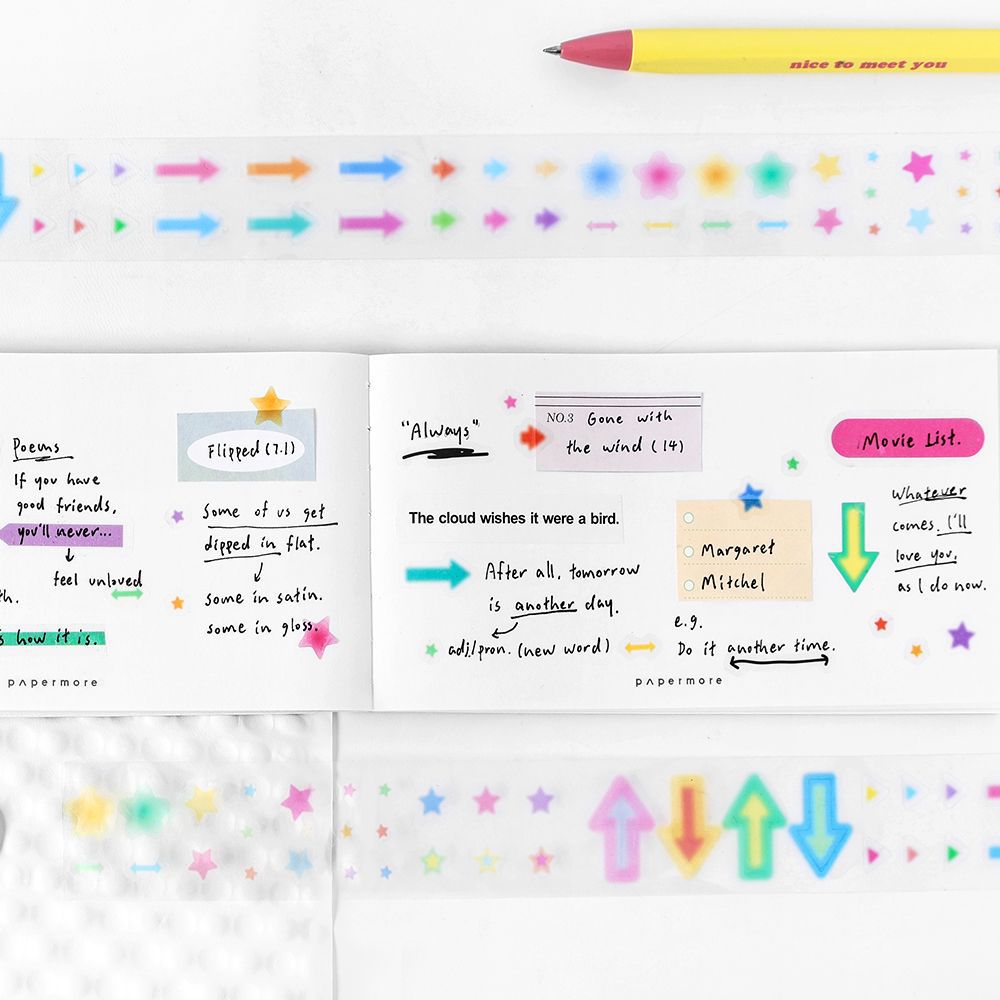 nice to meet you
Poems
If you have
good friends,
you'll never...
feel unloved
how it is.
papermore
Flipped (7.1)
Some of us get
dipped in flat.
some in satin.
some in gloss.
"Always"
NO.3 Gone with
the wind (14)
The cloud wishes it were a bird.
After all, tomorrow
is another day.
adj/pron. (new word)
Margaret
Mitchel
e.g.
Do it another time.
papermore
Movie List.
Whatever
comes, I'll
love you,
as I do now.